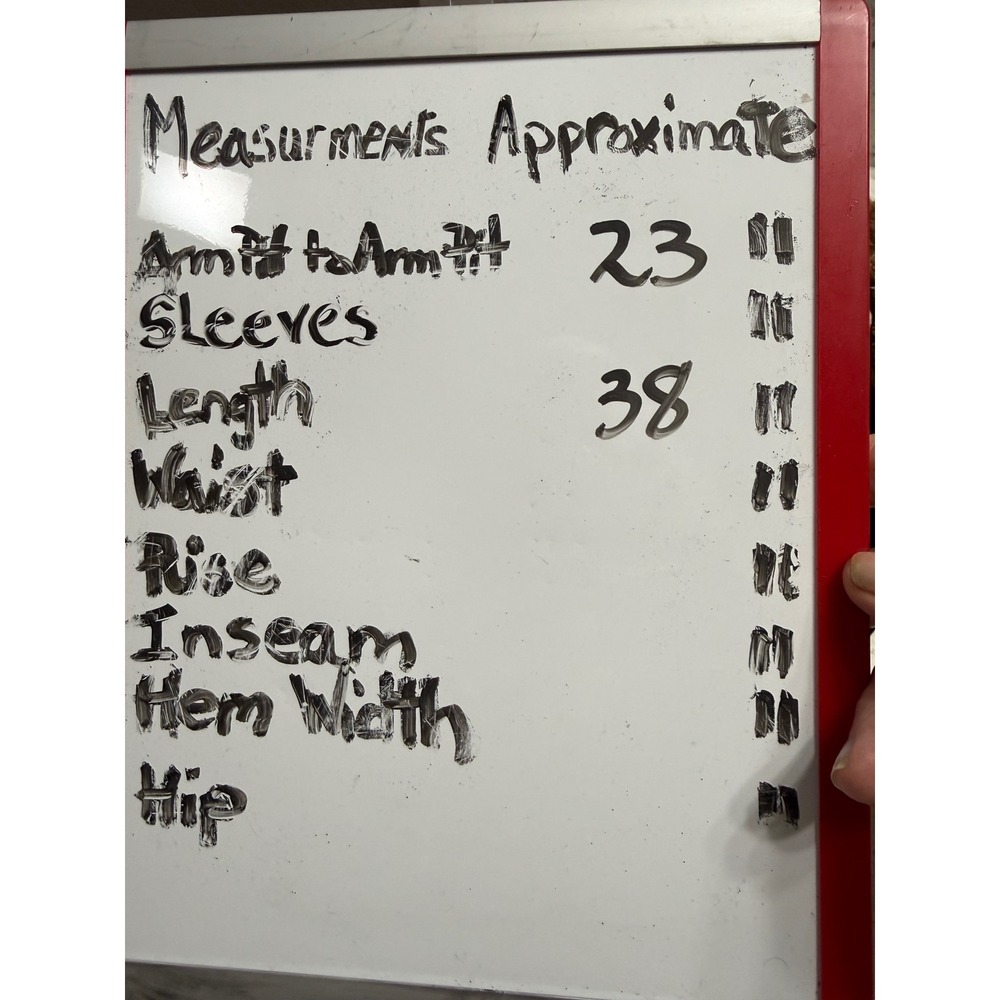 Measurments Approximate
ArmPit to ArmPit 23 "
Sleeves "
Length 38 "
Waist "
Rise "
Inseam "
Hem Width "
Hip "